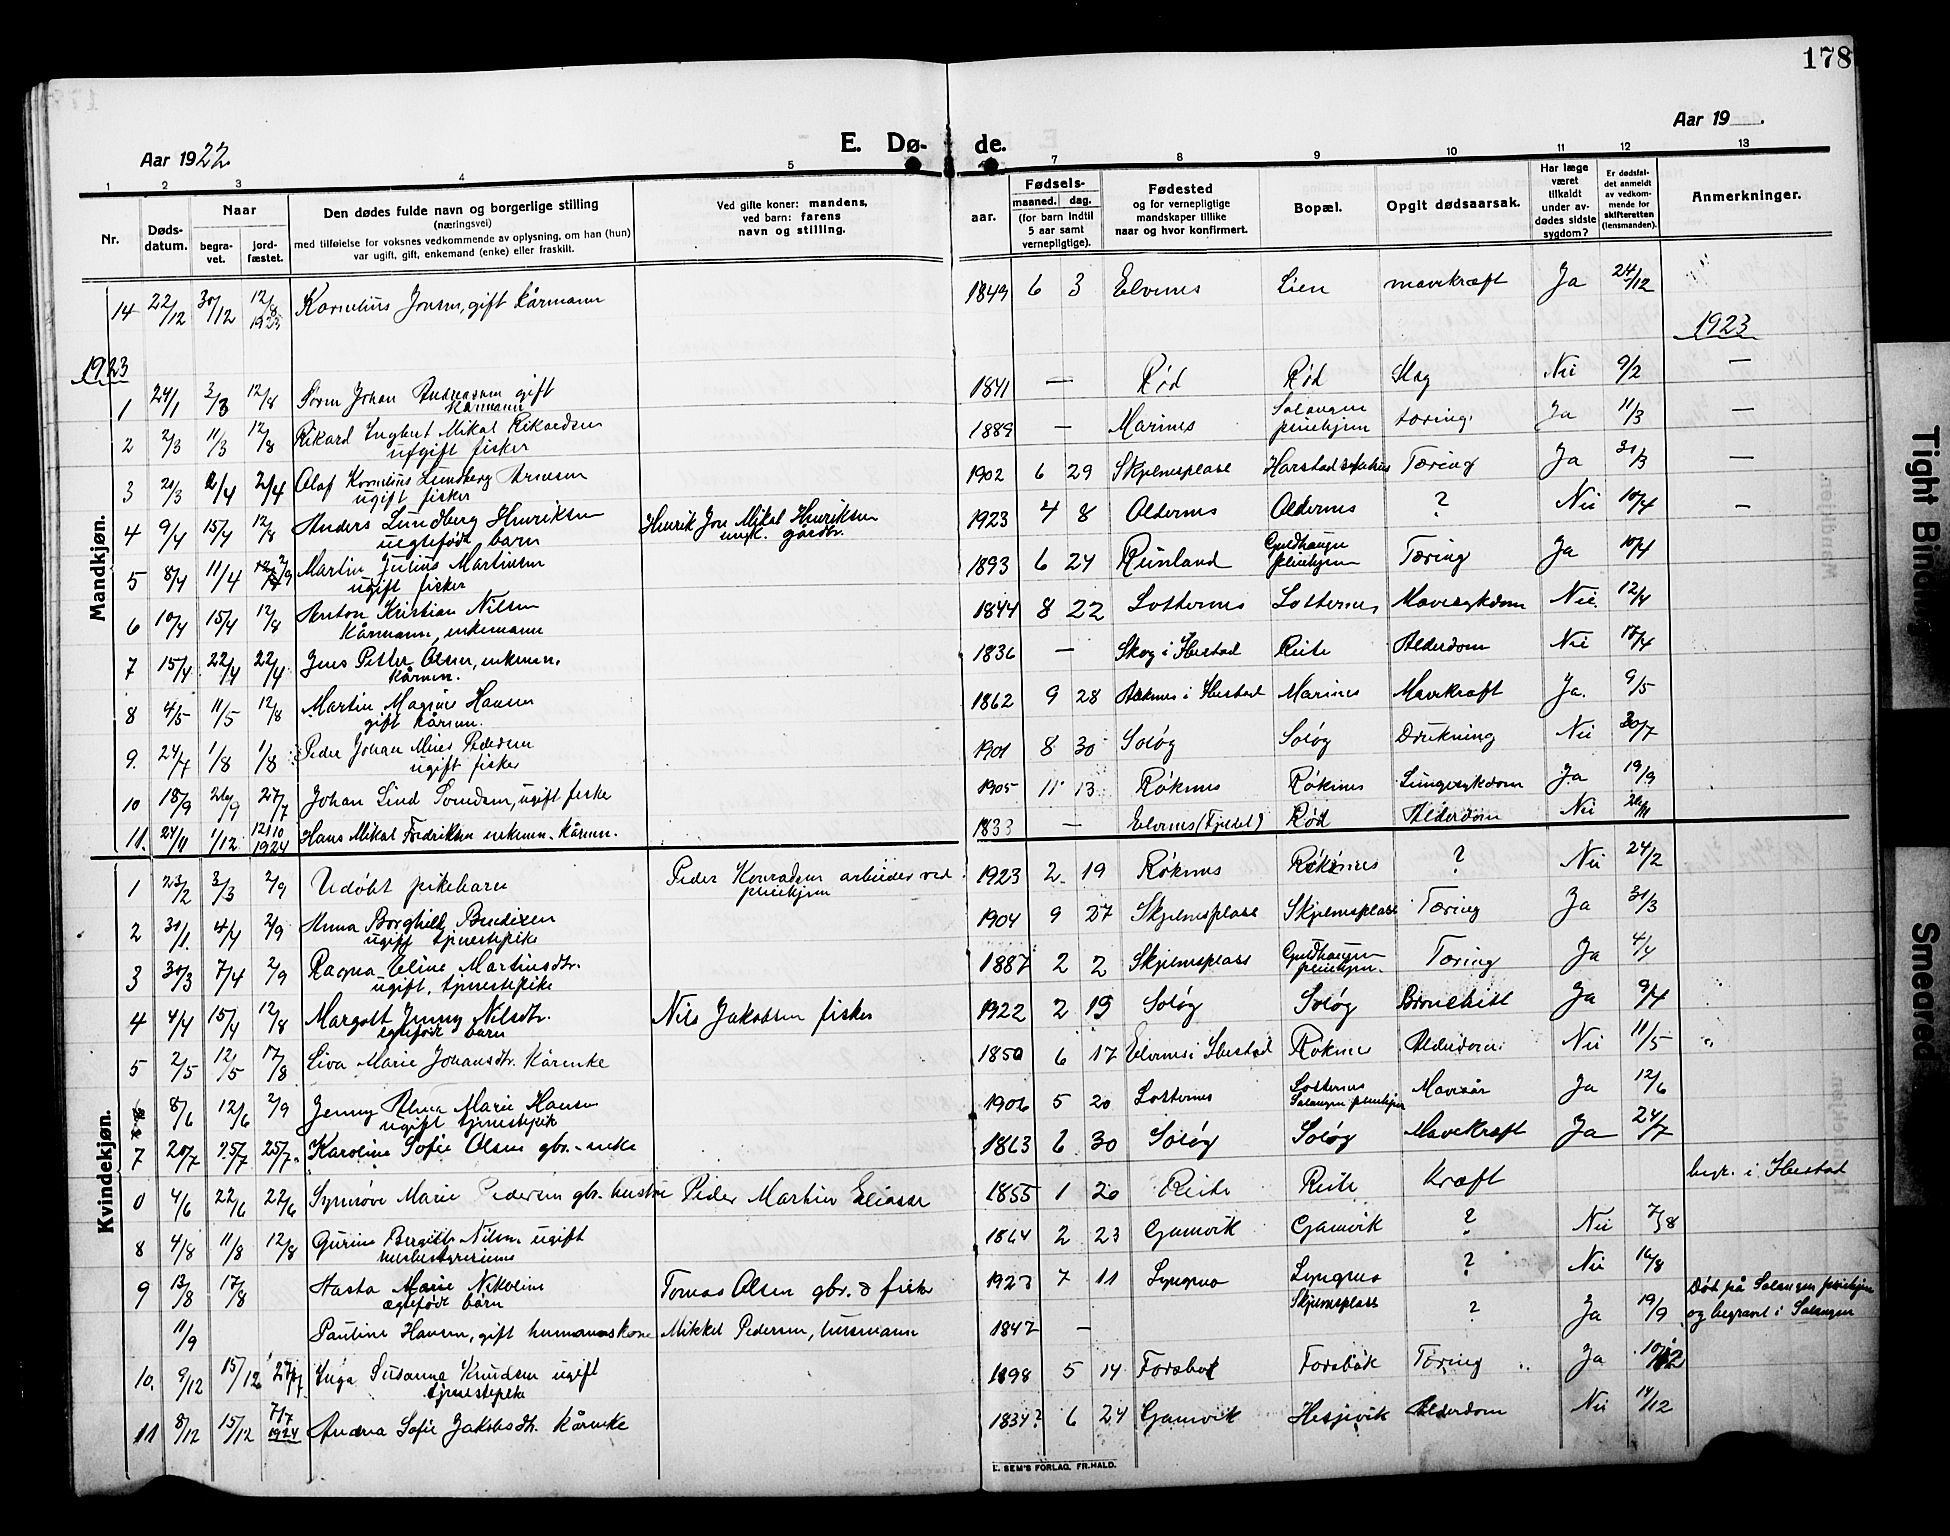 178
Aar 1922.
E. Dø-
de.
Aar 19 .
1 2 3 4 5 7 8 9 10 11 12 13
Nr. Døds-datum. Naar begra-vet. jord-fæstet.
Den dødes fulde navn og borgerlige stilling
(næringsvei)
med tilføielse for voksnes vedkommende av oplysning, om han (hun)
var ugift, gift, enkemand (enke) eller fraskilt.
Ved gifte koner: mandens,
ved barn: farens
navn og stilling.
aar. Fødsels- maaned. dag.
(for barn indtil
5 aar samt
vernepligtige).
Fødested
og for vernepligtige
mandskaper tillike
naar og hvor konfirmert.
Bopæl.
Opgit dødsaarsak.
Har læge
været
tilkaldt
under av-
dødes sidste
sygdom?
Er dødsfal-
det anmeldt
av vedkom-
mende for
skifteretten
(lensmanden).
Anmerkninger.
14 22/12 30/12 12/8 1923 Kornelius Jensen, gift kårmann 1849 6 3 Elvenes Lien mavekræft Ja 24/12
1923 1923
Mandkjøn.
1 24/1 3/3 12/8 Søren Johan Andreassen gift 1841 — Rød Rød Slag Nei 9/2 —
kårmann
2 2/3 11/3 12/8 Rikard Ingbert Mikal Rikardsen 1889 — Marines Salangen pleiehjem tæring Ja 11/3 —
ugift fisker
3 21/3 2/4 2/4 Olaf Kornelius Lundberg Arnesen 1902 6 29 Skjelnesplass Harstad sykehus Tæring Ja 31/3 —
ugift fisker
4 9/4 15/4 12/8 Anders Lundberg Henriksen Henrik Jon Mikal Henriksen 1923 4 8 Oldernes Oldernes ? Nei 10/4 —
uegtefødt barn ungk. gårdbr.
5 8/4 11/4 2/9 Martin Julius Martinsen 1893 6 24 Reinland Guldhaugen pleiehjem Tæring Ja 10/4
ugift fisker
6 10/4 15/4 12/8 Anton Kristian Nilsen 1844 8 22 Lotternes Lotternes Mavesykdom Nei. 12/4
Kårmann, enkemann
7 15/4 22/4 22/4 Jens Petter Olsen, enkem. 1836 — Skog i Ibestad Reite Alderdom Nei 17/4
kårmn.
8 4/5 11/5 12/8 Martin Magnus Hansen 1862 9 28 i Ibestad Marines Mavekræft Ja. 9/5
gift kårmn.
9. 24/7 1/8 1/8 Peder Johan Pedersen 1901 8 30 Soløg Soløg Drukning Nei 30/7
ugift fisker
10 18/9 26/9 27/7 Johan Lind, ugift fisker 1905 11 13 Røknes Røknes Lungesykdom Ja 19/9
11. 24/11 1/12 12/10 1924 Hans Mikal Fredriksen enkem. kårmn. 1833 — Elvenes (Fjeldet) Rød Alderdom Nei 26/11
Kvindekjøn.
1 23/2 3/3 2/9 Udøbt pikebarn Peder Konradsen arbeider ved 1923 2 19 Røknes Røknes ? Nei 24/2
pleiehjem
2 31/1. 4/4 2/9 Anna Borghild Bendixen 1904 9 27 Skjelnesplass Skjelnesplass Tæring Ja 31/3
ugift tjenestepike
3 30/3 7/4 2/9 Ragna Eline Martinsdtr. 1887 2 2 Skjelnesplass Guldhaugen pleiehjem. Tæring Ja 4/4
ugift, tjenestepike
4 4/4 15/4 12/8 Margott Jenny Nilsdtr. Nils Jakobsen fisker 1922 2 19 Soløg Soløg Bronchitt Ja 9/4
egtefødt barn
5 2/5 12/5 17/8 Liva Marie Johansdtr. Kårenke 1850 6 17 Elvenes i Ibestad Røknes Alderdom Nei 11/5
8/6 12/6 2/9 Jenny Alma Marie Hansen 1906 5 20 Lotternes Lotternes Salangen pleiehjem Mavesår Ja 12/6
ugift tjenestepike
7 20/7 25/7 25/7 Karoline Sofie Olsen gbr.-enke 1863 6 30 Soløg Soløg Mavekræft Ja 24/7
0 4/6 22/6 22/6 Synnøve Marie Pedersen gbr. hustru Peder Martin Eliassen 1855 1 20 Reite Reite Kræft begr. i Ibestad
8 4/8 11/8 12/8 Gurine Bergitte Nilsen ugift 1864 2 23 Gamvik Gamvik ? Nei 7/8
husbestyrerinne
9 13/8 17/8 Hasta Marie Nikoline Tomas Olsen gbr. & fisker 1923 7 11 ? Nei 16/8
ægtefødt barn
11/9 Pauline Hansen, gift husmannskone Mikkel Pedersen, husmann 1847 — Skjelnesplass ? Ja 19/9 Død på Salangen pleiehjem
og begravet i Salangen
10. 9/12 15/12 27/7 Inga Susanna Knudsen ugift 1898 5 14 Forsbak Forsbak Tæring Ja 10/12
tjenestepike
11 8/12 15/12 7/7 1924 Andrea Sofie Jakobsdtr. kårenke 1834? 6 24 Gamvik Hesjevik Alderdom Nei 14/12
E. SEM'S FORLAG, FR.HALD.
Tight Binding
Smeared